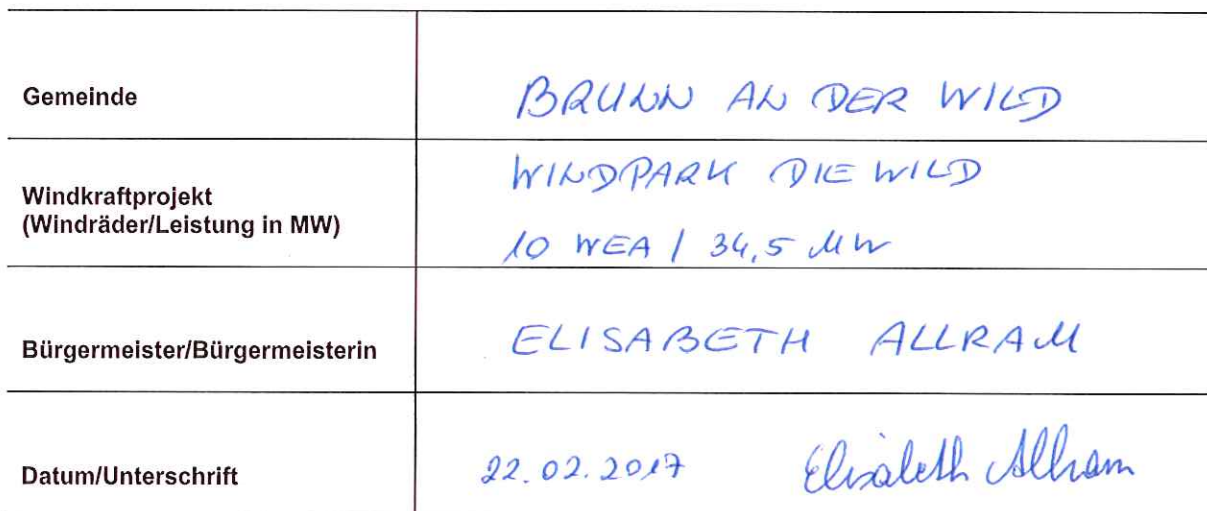 Gemeinde BRUNN AN DER WILD
Windkraftprojekt
(Windräder/Leistung in MW)
WINDPARK DIE WILD
10 WEA / 34,5 MW
Bürgermeister/Bürgermeisterin ELISABETH ALLRAM
Datum/Unterschrift 22.02.2017 Elisabeth Allram